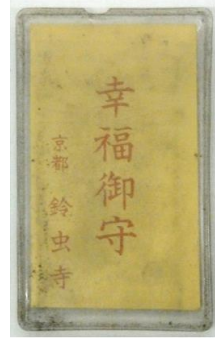 幸福御守
京都 鈴虫寺